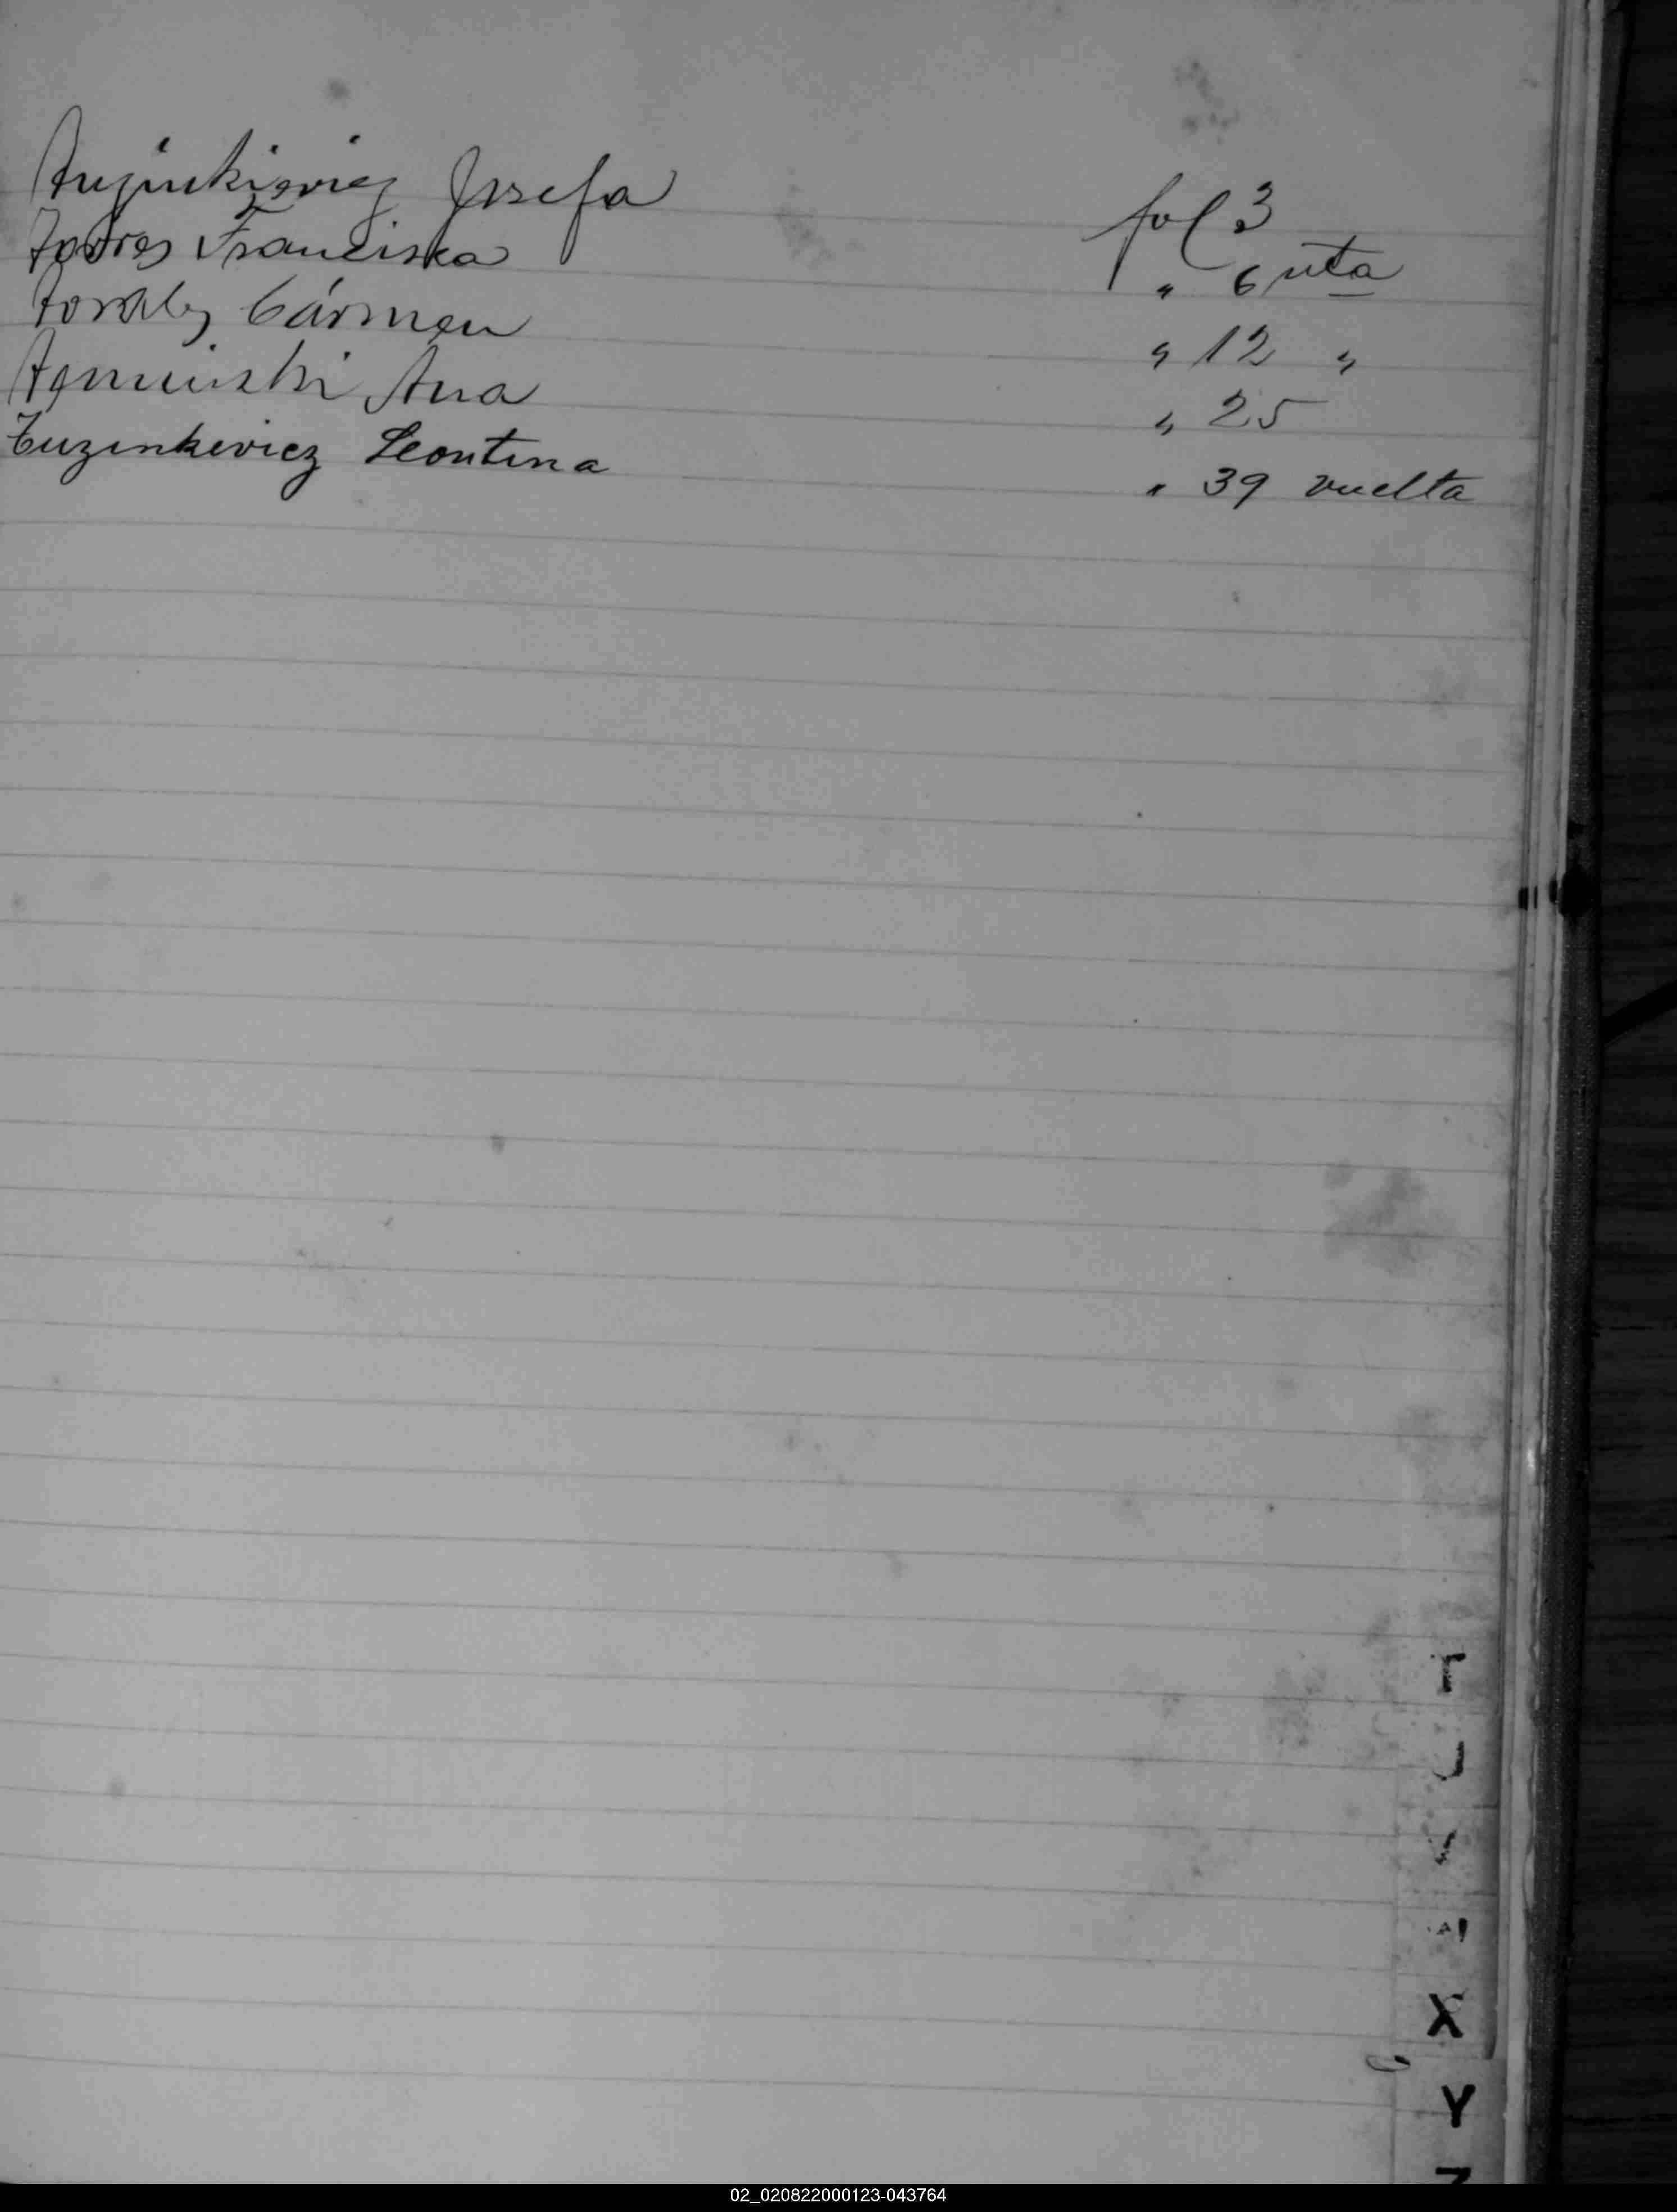 Tuzinkiewicz Josefa fol 3
Torres Franciska " 6 vta
Cármen " 12 "
Ana " 25
Tuzinkevicz Leontina " 39 vuelta
T
U
X
Y
Z
02_020822000123-043764